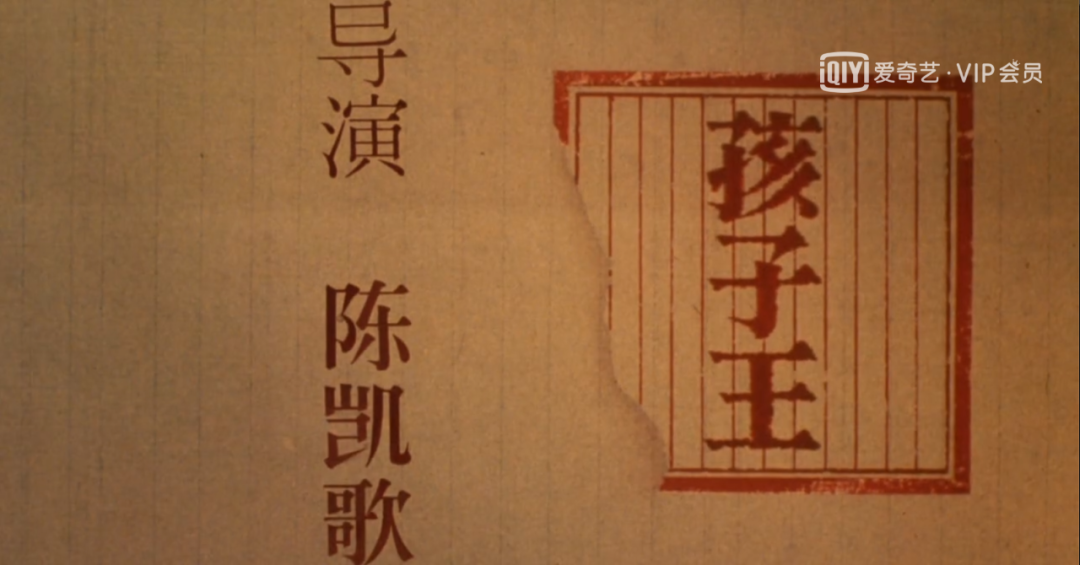 导演 陈凯歌
孩子王
iQIYI 爱奇艺·VIP会员